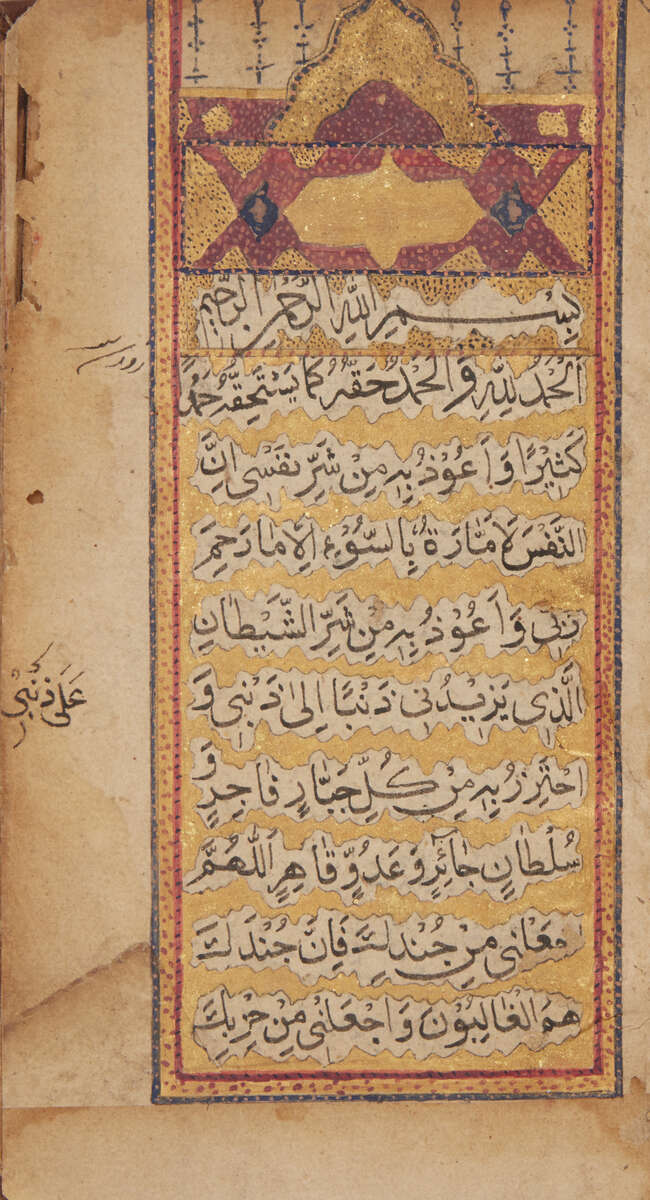 بِسْمِ اللّٰهِ الرَّحْمٰنِ الرَّحِيْمِ
اَلْحَمْدُ لِلّٰهِ وَالْحَمْدُ حَقُّهُ كَمَا يَسْتَحِقُّهُ حَمْدًا
كَثِيْرًا وَاَعُوْذُ بِهِ مِنْ شَرِّ نَفْسِى اِنَّ
النَّفْسَ لَاَمَّارَةٌ بِالسُّوْءِ اِلَّا مَا رَحِمَ
رَبِّى وَاَعُوْذُ بِهِ مِنْ شَرِّ الشَّيْطَانِ
الَّذِى يَزِيْدُنِى ذَنْبًا اِلٰى ذَنْبِى وَ
اَحْتَرِزُ بِهِ مِنْ كُلِّ جَبَّارٍ فَاجِرٍ وَ
سُلْطَانٍ جَائِرٍ وَعَدُوٍّ قَاهِرٍ اَللّٰهُمَّ
اجْعَلْنِى مِنْ جُنْدِكَ فَاِنَّ جُنْدَكَ
هُمُ الْغَالِبُوْنَ وَاجْعَلْنِى مِنْ حِزْبِكَ
عَلٰى ذَنْبِى